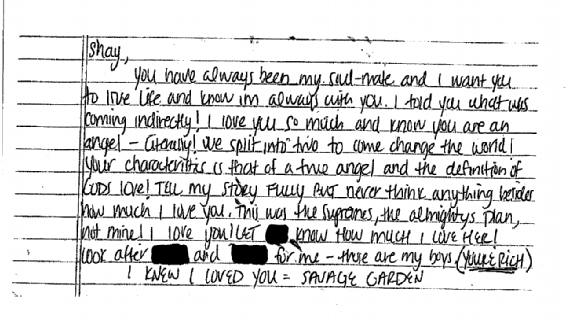 Shay,
you have always been my soul-mate and I want you
to live life and know im always with you. I told you what was
coming indirectly! I love you so much and know you are an
angel - literally! We split into two to come change the world!
your characteristics is that of a true angel and the definition of
GODs love! TELL my STORY FULLY BUT never think anything besides
how much I love you. This was the supremes, the almightys plan,
not mine! I love you! LET know HOW MUCH I LOVE HER!
look after and for me - those are my boys. (YOURE RICH)
I KNEW I LOVED YOU = SAVAGE GARDEN